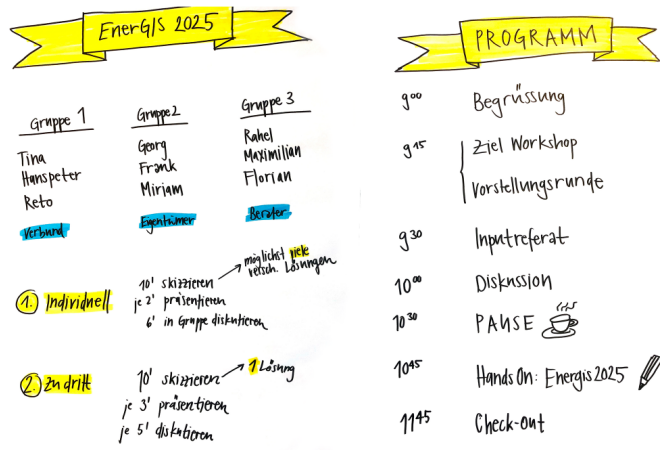 EnerGIS 2025
Gruppe 1
Tina
Hanspeter
Reto
Verbund
Gruppe 2
Georg
Frank
Miriam
Eigentümer
Gruppe 3
Rahel
Maximilian
Florian
Berater
1. Individuell
10' skizzieren
möglichst viele
versch. Lösungen
je 2' präsentieren
6' in Gruppe diskutieren
2. Zu dritt
10' skizzieren
1 Lösung
je 3' präsentieren
je 5' diskutieren
PROGRAMM
9⁰⁰ Begrüssung
9¹⁵ Ziel Workshop
Vorstellungsrunde
9³⁰ Inputreferat
10⁰⁰ Diskussion
10³⁰ PAUSE
10⁴⁵ Hands On: Energis 2025
11⁴⁵ Check-out